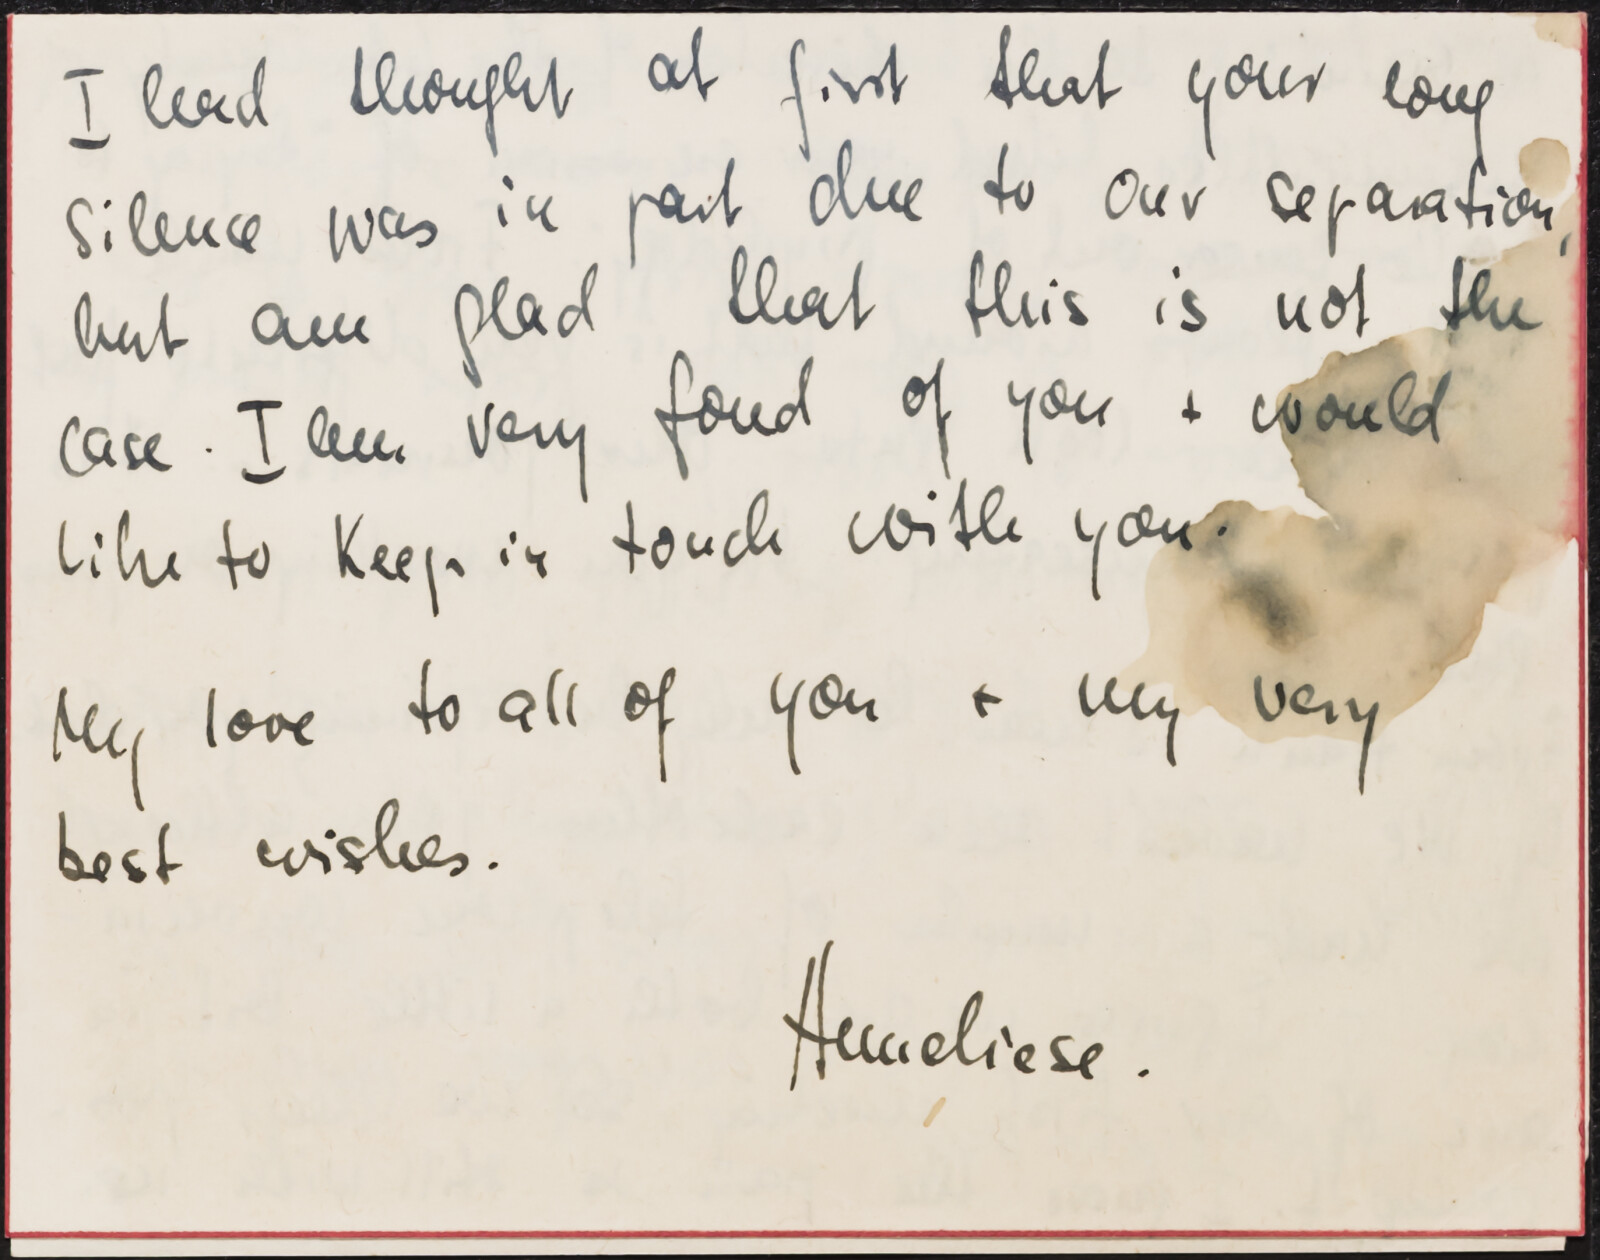 I had thought at first that your long
silence was in part due to our separation,
but am glad that this is not the
case. I am very fond of you + would
like to keep in touch with you.
My love to all of you + my very
best wishes.
Anneliese.